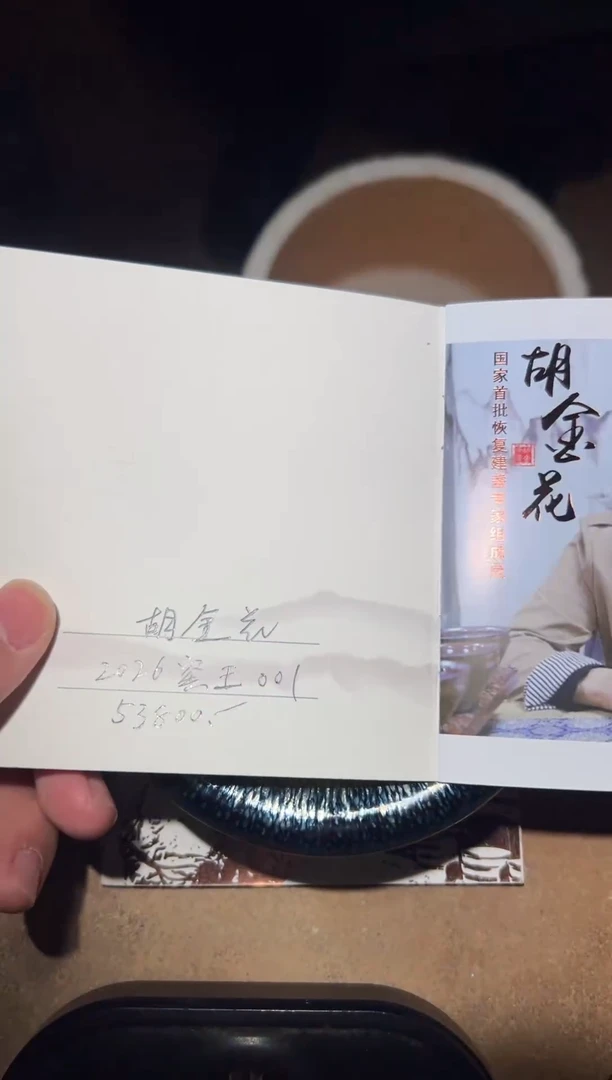 胡金花
2026窑王001
53800.
胡金花
国家首批恢复建盏专家组成员